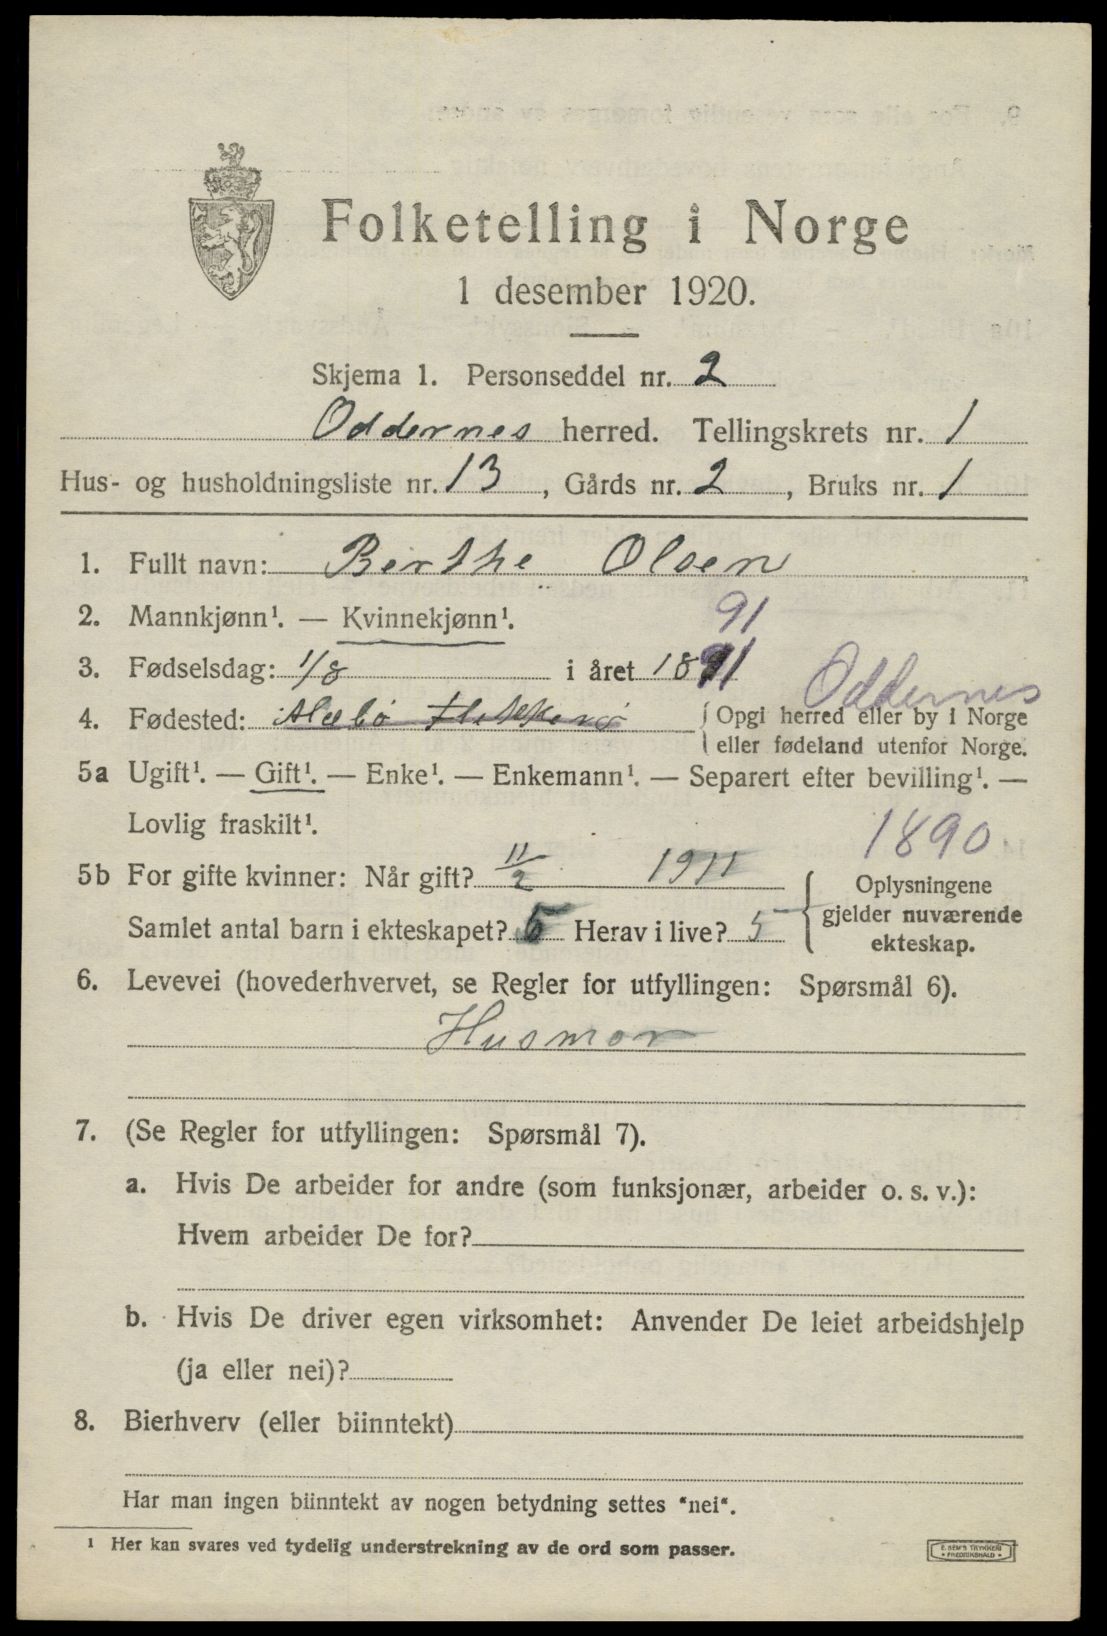 Folketelling i Norge
1 desember 1920.
Skjema 1. Personseddel nr. 2
Oddernes herred. Tellingskrets nr. 1
Hus- og husholdningsliste nr. 13, Gårds nr. 2, Bruks nr. 1
1. Fullt navn: Berthe Olsen
2. Mannkjønn¹. — Kvinnekjønn¹.
91
3. Fødselsdag: 1/8 i året 1891
Oddernes
4. Fødested: Flekkerø
Opgi herred eller by i Norge
eller fødeland utenfor Norge.
5a Ugift¹. — Gift¹. — Enke¹. — Enkemann¹. — Separert efter bevilling¹. —
Lovlig fraskilt¹.
1890
5b For gifte kvinner: Når gift? 11/2 1911
Samlet antal barn i ekteskapet? 5 Herav i live? 5
Oplysningene
gjelder nuværende
ekteskap.
6. Levevei (hovederhvervet, se Regler for utfyllingen: Spørsmål 6).
Husmor
7. (Se Regler for utfyllingen: Spørsmål 7).
a. Hvis De arbeider for andre (som funksjonær, arbeider o. s. v.):
Hvem arbeider De for?
b. Hvis De driver egen virksomhet: Anvender De leiet arbeidshjelp
(ja eller nei)?
8. Bierhverv (eller biinntekt)
Har man ingen biinntekt av nogen betydning settes "nei".
¹ Her kan svares ved tydelig understrekning av de ord som passer.
E. SEM'S TRYKKERI
• FREDRIKSHALD •